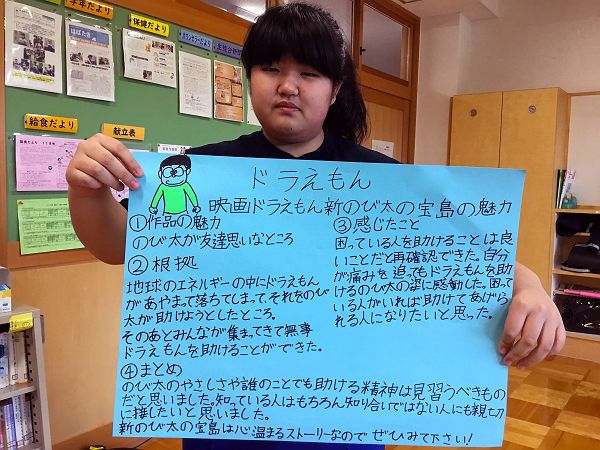 学年だより
保健だより
カウンセラーだより
生徒会新聞
はばたき
給食だより
献立表
ドラえもん
映画ドラえもん新のび太の宝島の魅力
①作品の魅力
のび太が友達思いなところ
② 根拠
地球のエネルギーの中にドラえもん
があやまって落ちてしまって、それをのび
太が助けようとしたところ。
そのあとみんなが集まってきて無事
ドラえもんを助けることができた。
③感じたこと
困っている人を助けることは良
いことだと再確認できた。自分
が痛みを追ってもドラえもんを助
けるのび太の姿に感動した。困って
いる人がいれば助けてあげら
れる人になりたいと思った。
④まとめ
のび太のやさしさや誰のことでも助ける精神は見習うべきもの
だと思いました。知っている人はもちろん知り合いではない人にも親切
に接したいと思いました。
新のび太の宝島は心温まるストーリーなので ぜひみて下さい!